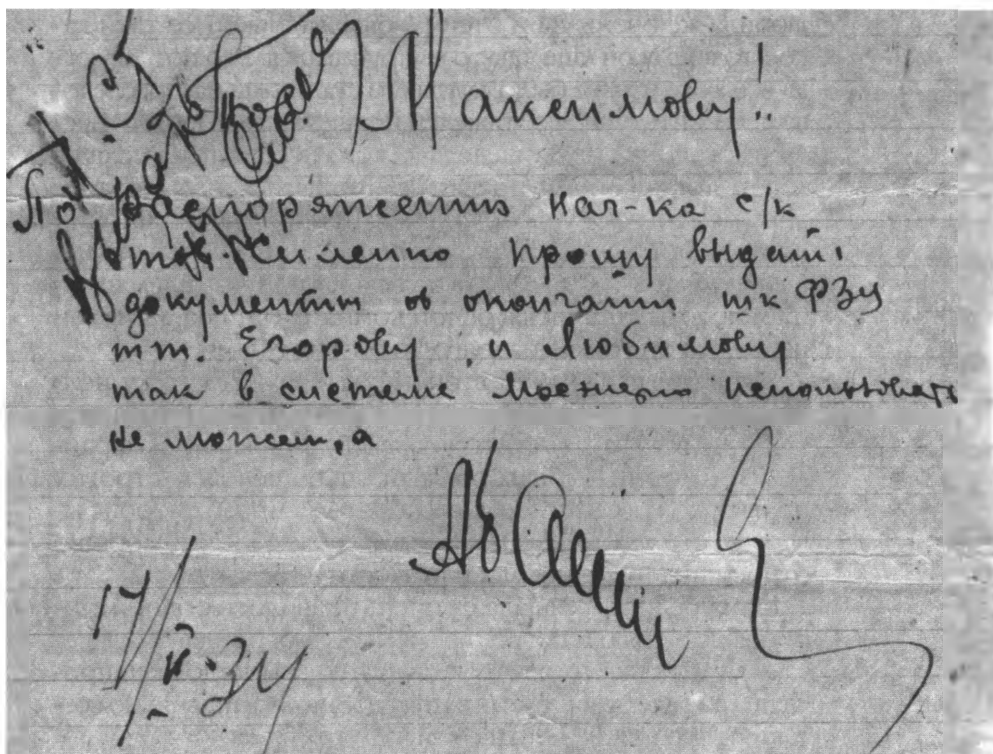 Максимову!!
По распоряжению нач-ка с/к
тов. Киленко прошу выдать
документы об окончании шк ФЗУ
тт. Егорову и Любимову
так в системе Мосэнерго использовать
не может, а
17/II-34